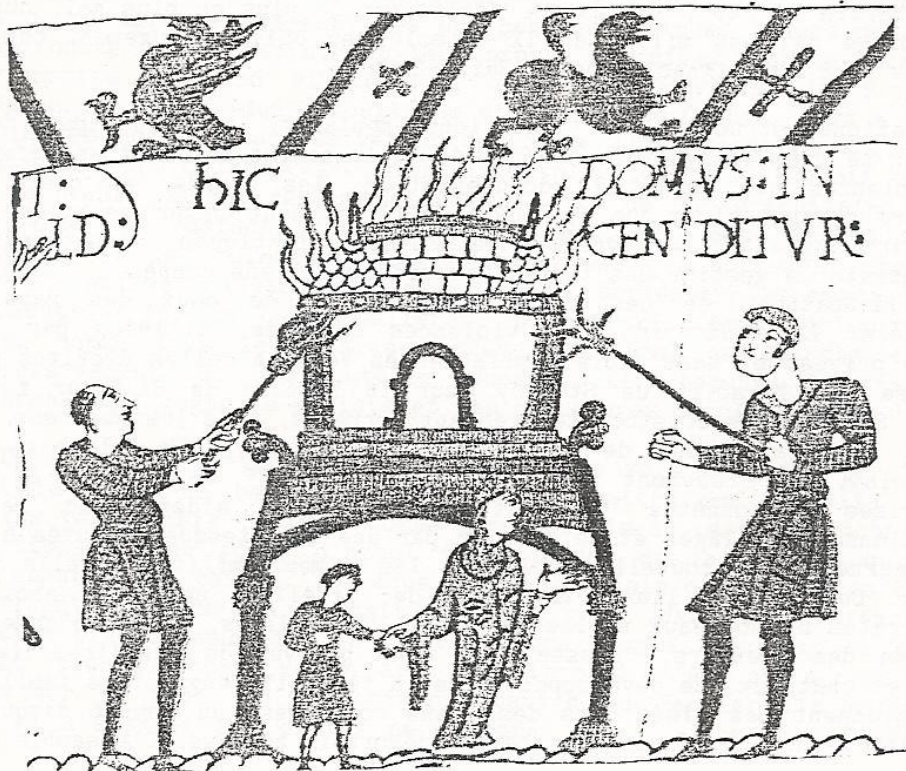 T: hIC DOMVS: IN
LD: CEN DITVR: